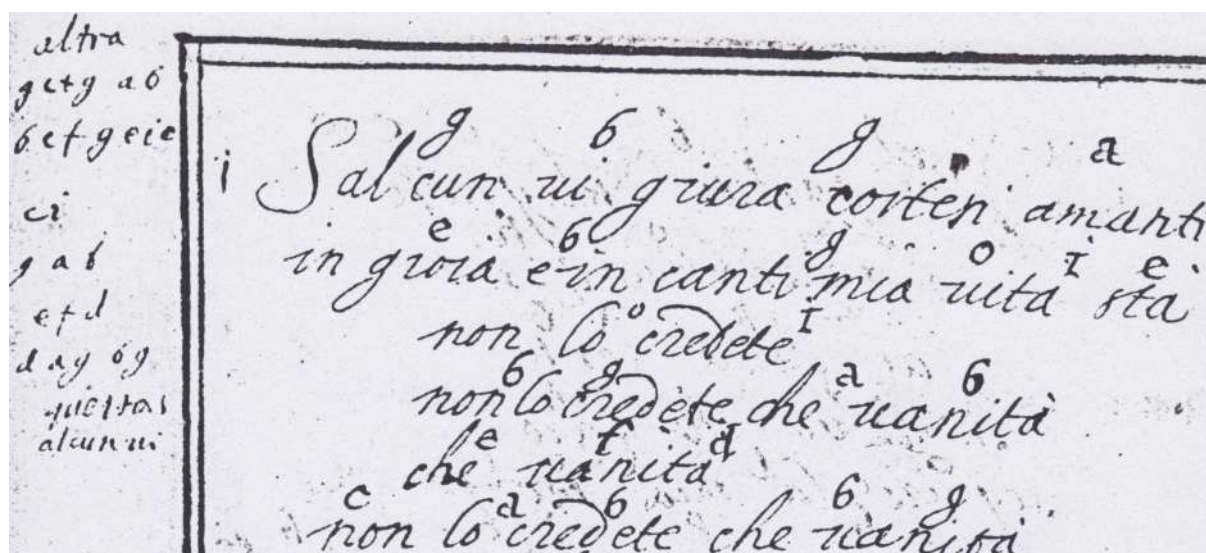 altra
ci
g a b
e f d
d a g b g
alcun ui
g b g a
i Sal cun ui giura cortesi amanti
e b g o I e
in gioia e in canti mia uita stà
o I
non lo credete
b g a b
non lo credete che uanità
e f d
che uanità
c a b b g
non lo credete che uanità